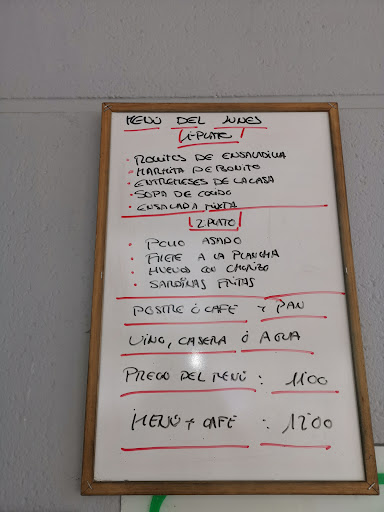 MENÚ DEL LUNES
1-PLATO
· ROLLITOS DE ENSALADILLA
· MARMITA DE BONITO
· ENTREMESES DE LA CASA
· SOPA DE COCIDO
· ENSALADA MIXTA
2 PLATO
· POLLO ASADO
· FILETE A LA PLANCHA
· HUEVOS CON CHORIZO
· SARDINAS FRITAS
POSTRE Ó CAFE Y PAN
VINO, CASERA Ó AGUA
PRECIO DEL MENÚ : 11'00
MENÚ + CAFÉ : 12'00